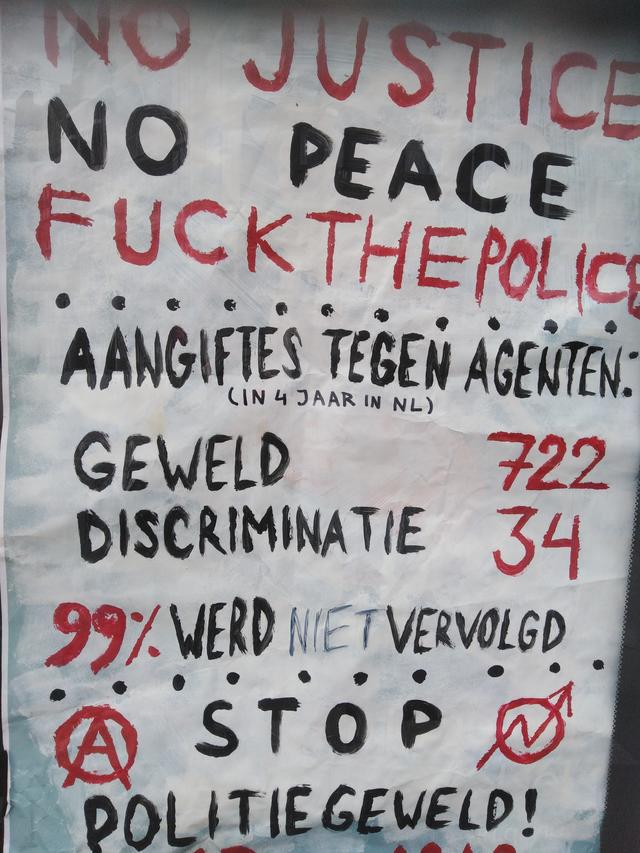 NO JUSTICE
NO PEACE
FUCK THE POLICE
AANGIFTES TEGEN AGENTEN:
(IN 4 JAAR IN NL)
GEWELD 722
DISCRIMINATIE 34
99% WERD NIET VERVOLGD
STOP
POLITIEGEWELD!